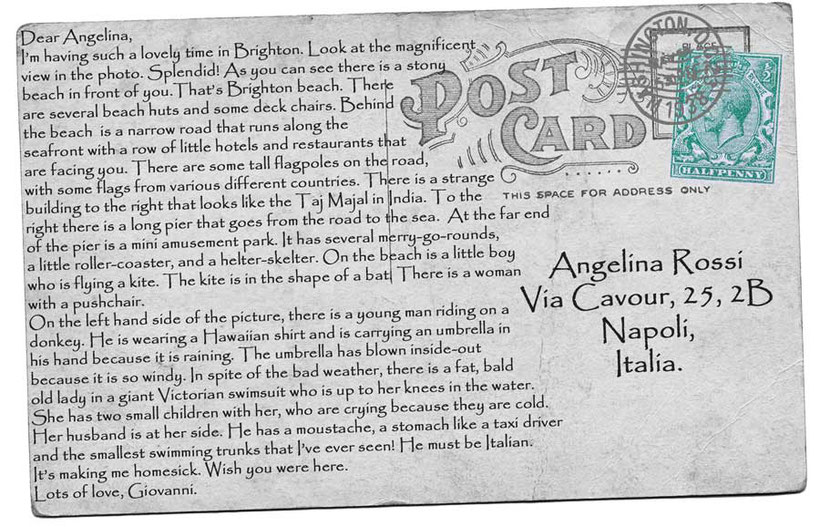 Dear Angelina,
I'm having such a lovely time in Brighton. Look at the magnificent
view in the photo. Splendid! As you can see there is a stony
beach in front of you. That's Brighton beach. There
are several beach huts and some deck chairs. Behind
the beach is a narrow road that runs along the
seafront with a row of little hotels and restaurants that
are facing you. There are some tall flagpoles on the road,
with some flags from various different countries. There is a strange
building to the right that looks like the Taj Majal in India. To the
right there is a long pier that goes from the road to the sea. At the far end
of the pier is a mini amusement park. It has several merry-go-rounds,
a little roller-coaster, and a helter-skelter. On the beach is a little boy
who is flying a kite. The kite is in the shape of a bat. There is a woman
with a pushchair.
On the left hand side of the picture, there is a young man riding on a
donkey. He is wearing a Hawaiian shirt and is carrying an umbrella in
his hand because it is raining. The umbrella has blown inside-out
because it is so windy. In spite of the bad weather, there is a fat, bald
old lady in a giant Victorian swimsuit who is up to her knees in the water.
She has two small children with her, who are crying because they are cold.
Her husband is at her side. He has a moustache, a stomach like a taxi driver
and the smallest swimming trunks that I've ever seen! He must be Italian.
It's making me homesick. Wish you were here.
Lots of love, Giovanni.
POST
CARD
THIS SPACE FOR ADDRESS ONLY
HALFPENNY
Angelina Rossi
Via Cavour, 25, 2B
Napoli,
Italia.